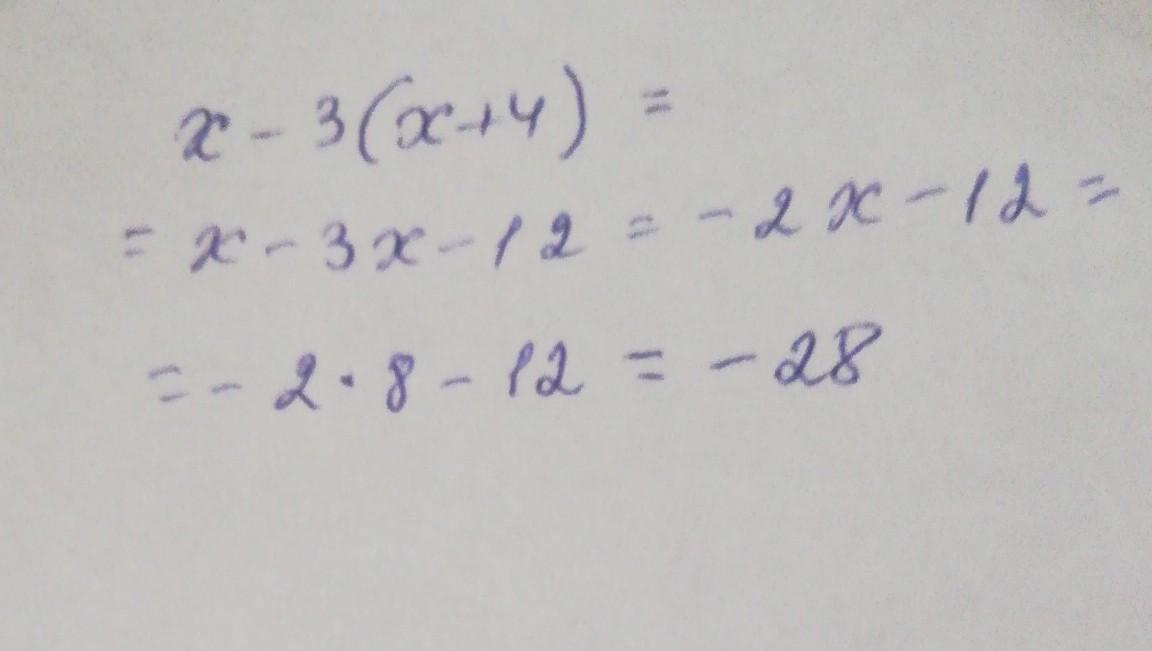 x - 3(x+4) =
= x - 3x - 12 = - 2x - 12 =
= - 2 · 8 - 12 = - 28